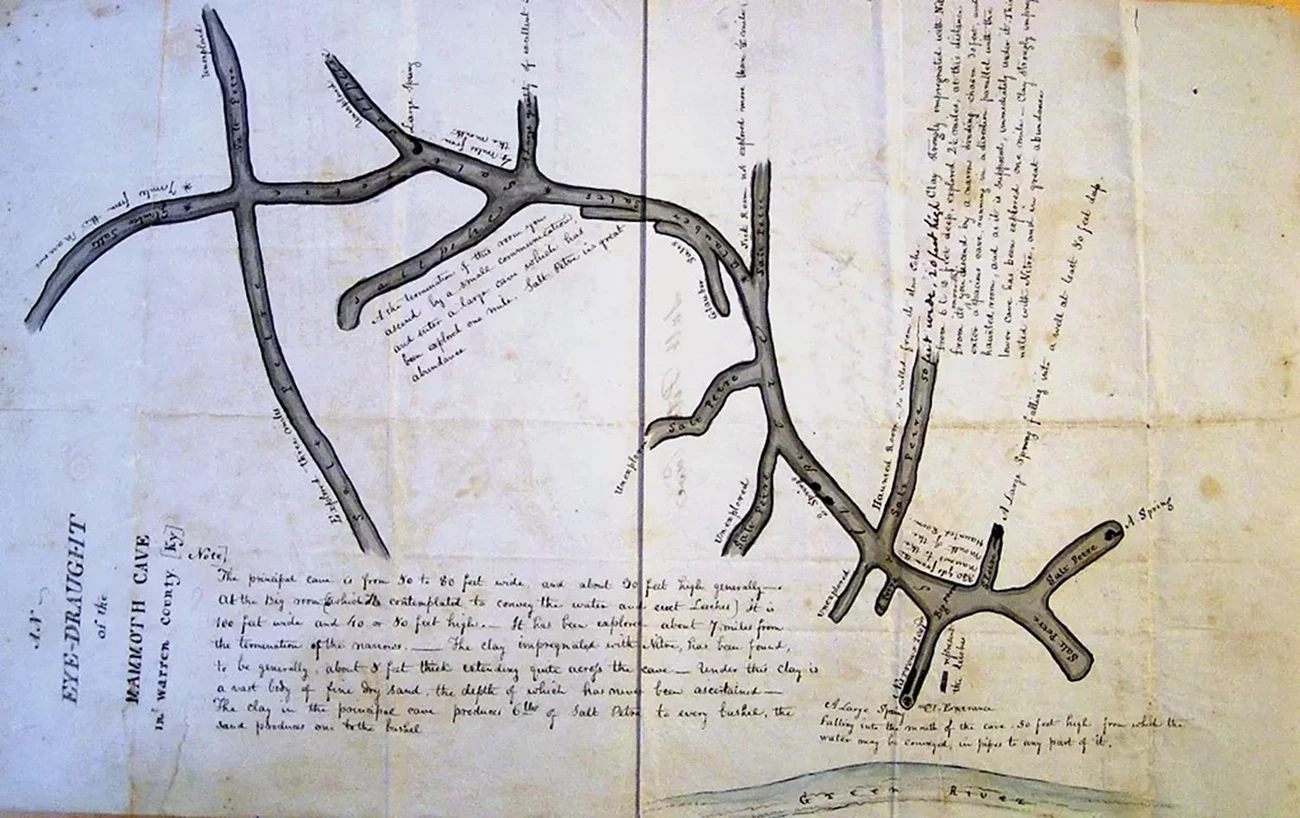 AN
EYE-DRAUGHT
of the
MAMMOTH CAVE
in Warren County [Ky]
Note]
The principal cave is from 50 to 80 feet wide, and about 50 feet high generally—
At the Big room [which its contemplated to convey the water and erect Leeches] It is
100 feet wide and 40 or 50 feet high. — It has been explored about 7 miles from
the termination of the narrows. — The clay impregnated with Nitre, has been found,
to be generally, about 5 feet thick extending quite across the cave — Under this clay is
a vast body of fine dry sand, the depth of which has never been ascertained —
The clay in the principal cave produces 6 lbs of Salt Petre to every bushel, the
sand produces one to the bushel
Unexplored
Salt Petre
7 miles from the Narrows
Glauber Salts
Explored three miles
Salt Petre
Unexplored
Large Spring
4 miles from the mouth
Large quantity of excellent
Salt Petre
A the termination of this room you
ascend by a small communication,
and enter a large cave which has
been explored one mile. Salt Petre in great
abundance
Glauber Salts
Sick Room not explored more than
Salt Petre
Salt Petre
Unexplored
Salt Petre
Unexplored
2 Springs
Haunted Room — so called from its
Salt Petre
50 feet wide, 20 feet high Clay strongly impregnated with
from 6 to 8 feet deep explored 2½ miles, at this distance
from its mouth you descend by a narrow winding chasm 30 feet, and
enter a spacious cave running in a direction parallel with the
haunted room, and as it is supposed, immediately under it This
lower cave has been explored one mile — Clay strongly
nated with Nitre, and in great abundance
A Large Spring falling into a well at least 50 feet deep.
320 yds from the
narrows to the
mouth of the
Haunted Room
Unexplored
Big room
Salt Petre
A Spring
Salt Petre
the Leeches
A Large Spring Entrance
Falling into the mouth of the cave 50 feet high from which the
water may be conveyed, in pipes to any part of it.
Green River